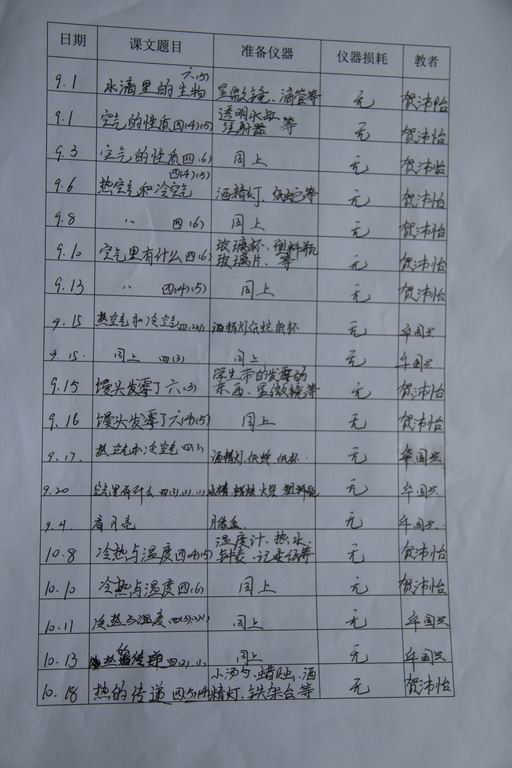 日期 课文题目 准备仪器 仪器损耗 教者
9.1 水滴里的生物 六(5) 显微镜、滴管等 无 贺沛怡
9.1 空气的性质四(4)(5) 透明水 注射器 等 无 贺沛怡
9.3 空气的性质四(6) 同上 无 贺沛怡
9.6 热空气和冷空气 四(4)(5) 酒精灯、纸 等 无 贺沛怡
9.8 〃 四(6) 同上 无 贺沛怡
9.10 空气里有什么四(6) 玻璃杯、塑料瓶 玻璃片、等 无 贺沛怡
9.13 〃 四(4)(5) 同上 无 贺沛怡
9.15 热空气和冷空气 酒精灯 纸蛇 纸杯 无 国兴
9.15. 同上 四(3) 同上 无 国兴
9.15 馒头发霉了六(3) 学生带的发霉的 东西、显微镜等 无 贺沛怡
9.16 馒头发霉了六(4)(5) 同上 无 贺沛怡
9.17. 热空气和冷空气 四(3) 酒精灯、纸蛇、纸杯. 无 国兴
9.20 空气里有什么 蜡烛 火柴 塑料瓶 无 国兴
9.21 看月亮 无 国兴
10.8 冷热与温度四(4)(5) 温度计、热水、 钟表、记录纸等 无 贺沛怡
10.10 冷热与温度四(6) 同上 无 贺沛怡
10.11 冷热与温度 同上 无 国兴
10.13 同上 无 国兴
10.18 热的传递 小汤勺、蜡烛、酒 精灯、铁架台等 无 贺沛怡